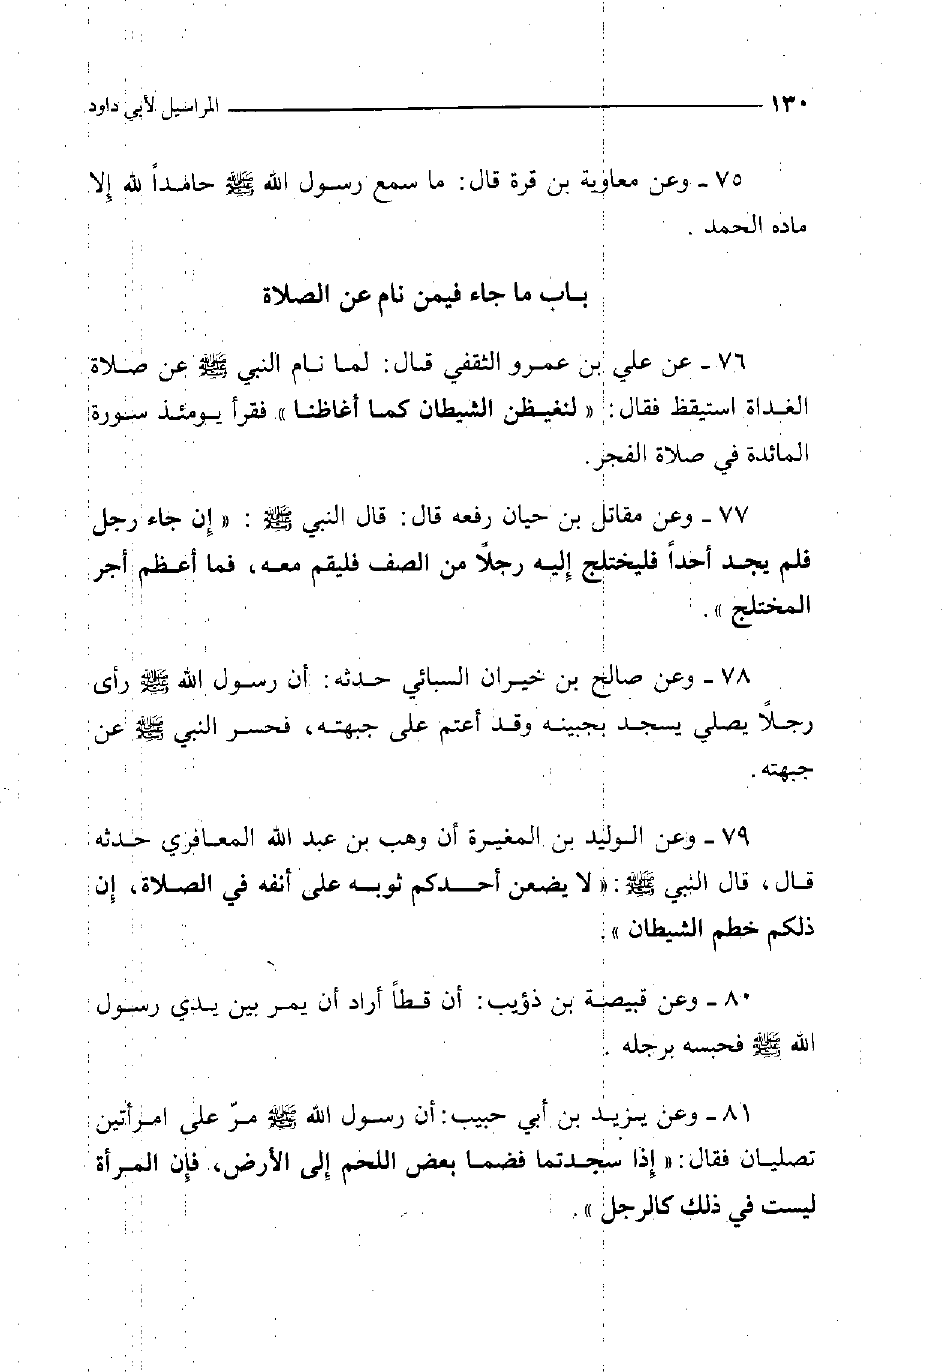 ١٣٠ المراسيل لأبي داود
٧٥ ـ وعن معاوية بن قرة قال: ما سمع رسول الله ﷺ حامداً لله إلا
ماده الحمد .
بـاب ما جاء فيمن نام عن الصلاة
٧٦ ـ عن علي بن عمرو الثقفي قال: لما نام النبي ﷺ عن صلاة
الغداة استيقظ فقال: « لنغيظن الشيطان كما أغاظنا » فقرأ يومئذ سورة
المائدة في صلاة الفجر.
٧٧ ـ وعن مقاتل بن حيان رفعه قال: قال النبي ﷺ : « إن جاء رجل
فلم يجد أحداً فليختلج إليه رجلاً من الصف فليقم معه، فما أعظم أجر
المختلج ».
٧٨ ـ وعن صالح بن خيران السبائي حدثه: أن رسول الله ﷺ رأى
رجلاً يصلي يسجد بجبينه وقد أعتم على جبهته، فحسر النبي ﷺ عن
جبهته.
٧٩ ـ وعن الوليد بن المغيرة أن وهب بن عبد الله المعافري حدثه
قال، قال النبي ﷺ: « لا يضعن أحدكم ثوبه على أنفه في الصلاة، إن
ذلكم خطم الشيطان ».
٨٠ ـ وعن قبيصة بن ذؤيب: أن قطاً أراد أن يمر بين يدي رسول
الله ﷺ فحبسه برجله .
٨١ ـ وعن يزيد بن أبي حبيب: أن رسول الله ﷺ مرّ على امرأتين
تصليان فقال: « إذا سجدتما فضما بعض اللحم إلى الأرض، فإن المرأة
ليست في ذلك كالرجل ».